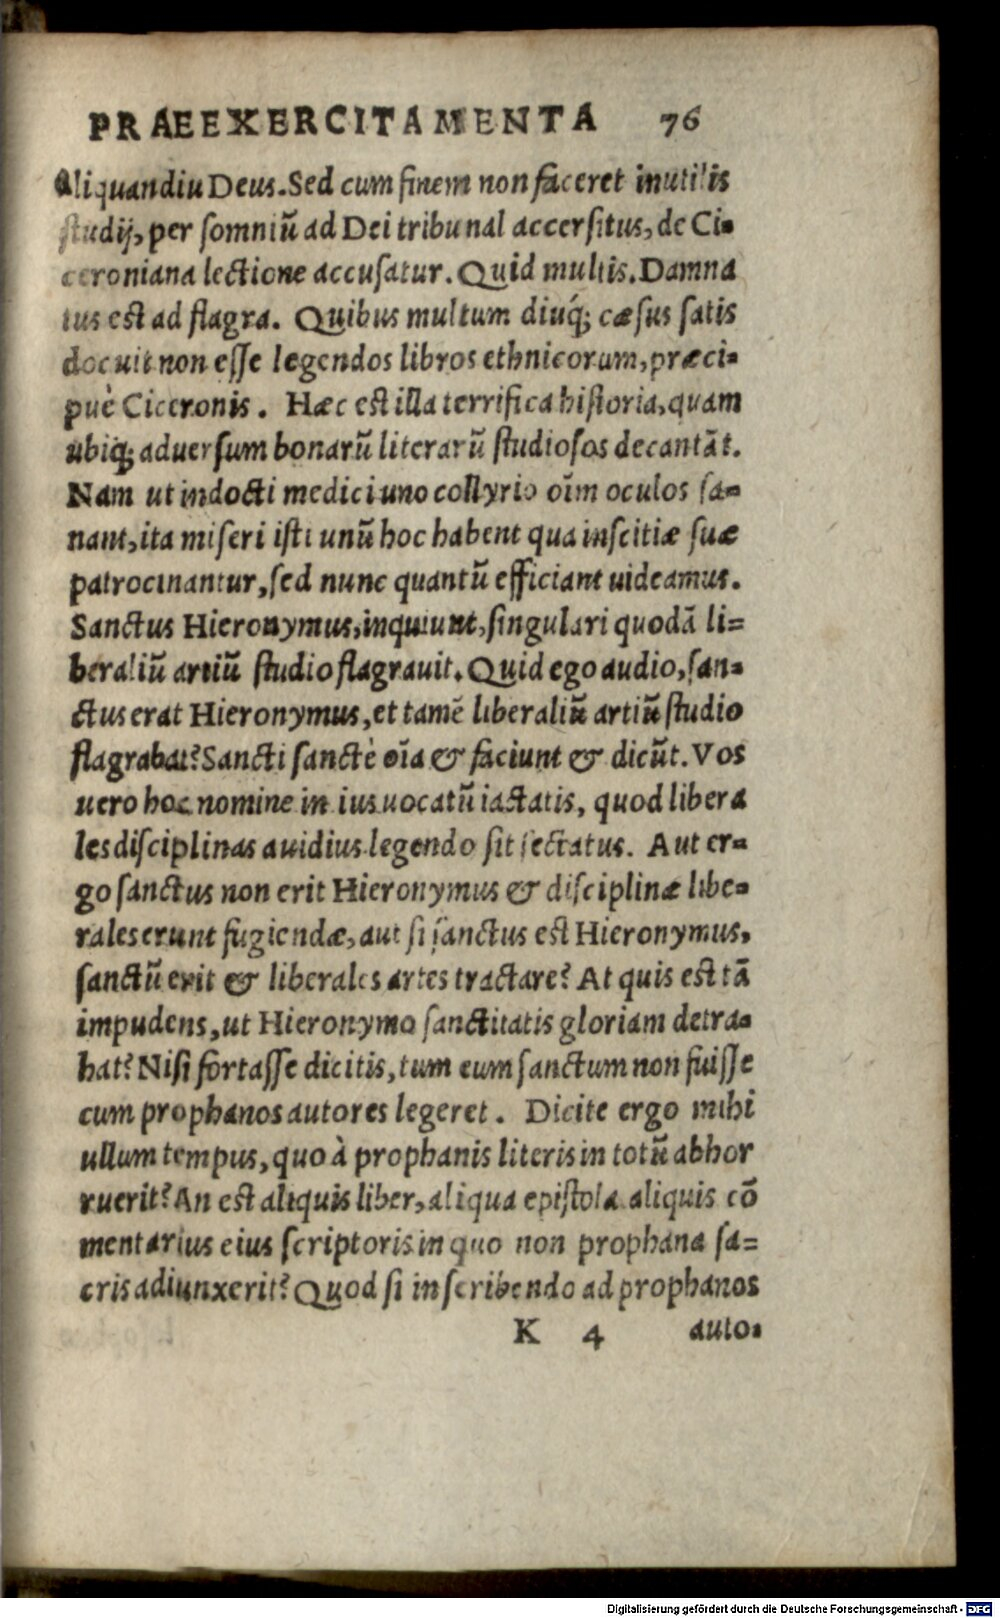 PRAEEXERCITAMENTA 76
aliquandiu Deus. Sed cum finem non faceret inutilis
studij, per somniū ad Dei tribunal accersitus, de Ci-
ceroniana lectione accusatur. Quid multis. Damna
tus est ad flagra. Quibus multum diuq́; cæsus satis
docuit non esse legendos libros ethnicorum, præci-
puè Ciceronis. Hæc est illa terrifica historia, quam
ubiq; aduersum bonarū literarū studiosos decantāt.
Nam ut indocti medici uno collyrio oīm oculos sa-
nant, ita miseri isti unū hoc habent qua inscitiæ suæ
patrocinantur, sed nunc quantū efficiant uideamus.
Sanctus Hieronymus, inquiunt, singulari quodā li=
beraliū artiū studio flagrauit. Quid ego audio, san-
ctus erat Hieronymus, et tamē liberaliū artiū studio
flagrabat? Sancti sanctè oīa & faciunt & dicūt. Vos
uero hoc nomine in ius uocatū iactatis, quod libera
les disciplinas auidius legendo sit sectatus. Aut er-
go sanctus non erit Hieronymus & disciplinæ libe-
rales erunt fugiendæ, aut si sanctus est Hieronymus,
sanctū erit & liberales artes tractare? At quis est tā
impudens, ut Hieronymo sanctitatis gloriam detra-
hat? Nisi fortasse dicitis, tum eum sanctum non fuisse
cum prophanos autores legeret. Dicite ergo mihi
ullum tempus, quo à prophanis literis in totū abhor
ruerit? An est aliquis liber, aliqua epistola aliquis cō
mentarius eius scriptoris in quo non prophana sa=
cris adiunxerit? Quod si in scribendo ad prophanos
K 4 auto-
Digitalisierung gefördert durch die Deutsche Forschungsgemeinschaft - DFG